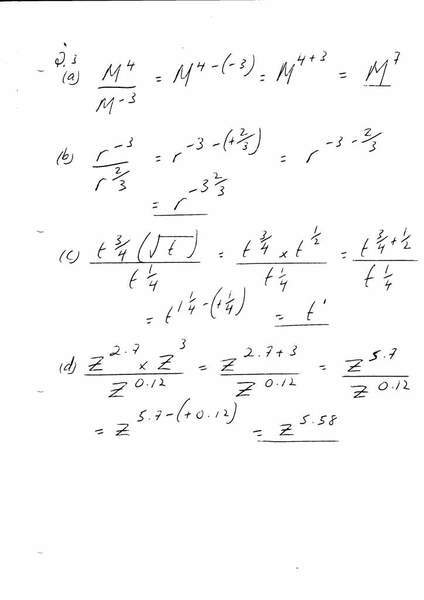 Q.3
(a) M^4 / M^-3 = M^4-(-3) = M^4+3 = M^7
(b) r^-3 / r^2/3 = r^-3-(+2/3) = r^-3-2/3
= r^-3 2/3
(c) t^3/4 (√t) / t^1/4 = t^3/4 × t^1/2 / t^1/4 = t^3/4+1/2 / t^1/4
= t^1 1/4-(+1/4) = t^1
(d) Z^2.7 × Z^3 / Z^0.12 = Z^2.7+3 / Z^0.12 = Z^5.7 / Z^0.12
= Z^5.7-(+0.12) = Z^5.58